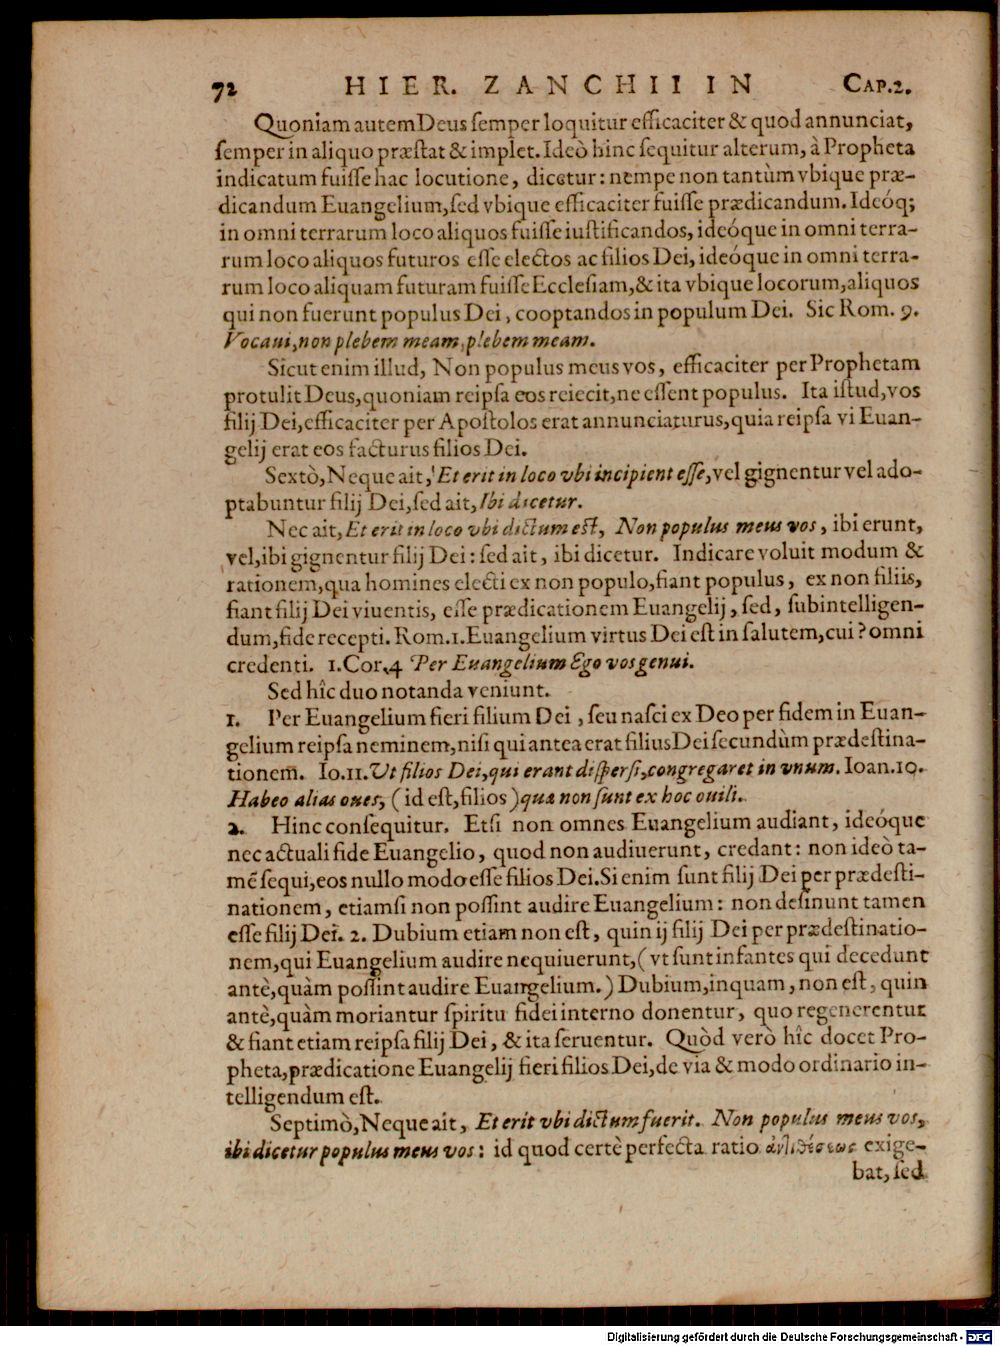 72 HIER. ZANCHII IN CAP.2.
Quoniam autem Deus ſemper loquitur efficaciter & quòd annunciat,
ſemper in aliquo præſtat & implet. Ideò hinc ſequitur alterum, à Propheta
indicatum fuiſſe hac locutione, dicetur: nempe non tantùm vbique præ-
dicandum Euangelium, ſed vbique efficaciter fuiſſe prædicandum. Ideóq;
in omni terrarum loco aliquos fuiſſe iuſtificandos, ideóque in omni terra-
rum loco aliquos futuros eſſe electos ac filios Dei, ideóque in omni terra-
rum loco aliquam futuram fuiſſe Eccleſiam, & ita vbique locorum, aliquos
qui non fuerunt populus Dei, cooptandos in populum Dei. Sic Rom. 9.
Vocaui, non plebem meam, plebem meam.
Sicut enim illud, Non populus meus vos, efficaciter per Prophetam
protulit Deus, quoniam reipſa eos reiecit, ne eſſent populus. Ita iſtud, vos
filij Dei, efficaciter per Apoſtolos erat annunciaturus, quia reipſa vi Euan-
gelij erat eos facturus filios Dei.
Sextò, Neque ait, Et erit in loco vbi incipient eſſe, vel gignentur vel ado-
ptabuntur filij Dei, ſed ait, Ibi dicetur.
Nec ait, Et erit in loco vbi dictum eſt, Non populus meus vos, ibi erunt,
vel, ibi gignentur filij Dei: ſed ait, ibi dicetur. Indicare voluit modum &
rationem, qua homines electi ex non populo, fiant populus, ex non filiis,
fiant filij Dei viuentis, eſſe prædicationem Euangelij, ſed, ſubintelligen-
dum, fide recepti. Rom.1. Euangelium virtus Dei eſt in ſalutem, cui? omni
credenti. 1.Cor.4 Per Euangelium Ego vos genui.
Sed hîc duo notanda veniunt.
1. Per Euangelium fieri filium Dei, ſeu naſci ex Deo per fidem in Euan-
gelium reipſa neminem, niſi qui antea erat filius Dei ſecundùm prædeſtina-
tionem. Io.11. Ut filios Dei, qui erant diſperſi, congregaret in vnum. Ioan.10.
Habeo alias oues, (id eſt, filios) quæ non ſunt ex hoc ouili.
2. Hinc conſequitur. Etſi non omnes Euangelium audiant, ideóque
nec actuali fide Euangelio, quod non audiuerunt, credant: non ideò ta-
mẽ ſequi, eos nullo modo eſſe filios Dei. Si enim ſunt filij Dei per prædeſti-
nationem, etiamſi non poſſint audire Euangelium: non deſinunt tamen
eſſe filij Dei. 2. Dubium etiam non eſt, quin ij filij Dei per prædeſtinatio-
nem, qui Euangelium audire nequiuerunt, (vt ſunt infantes qui decedunt
antè, quàm poſſint audire Euangelium.) Dubium, inquam, non eſt, quin
antè, quàm moriantur ſpiritu fidei interno donentur, quo regenerentur
& fiant etiam reipſa filij Dei, & ita ſeruentur. Quòd verò hîc docet Pro-
pheta, prædicatione Euangelij fieri filios Dei, de via & modo ordinario in-
telligendum eſt.
Septimò, Neque ait, Et erit vbi dictum fuerit. Non populus meus vos,
ibi dicetur populus meus vos: id quod certè perfecta ratio ἀντιθέσεως exige-
bat, ſed
Digitalisierung gefördert durch die Deutsche Forschungsgemeinschaft - DFG